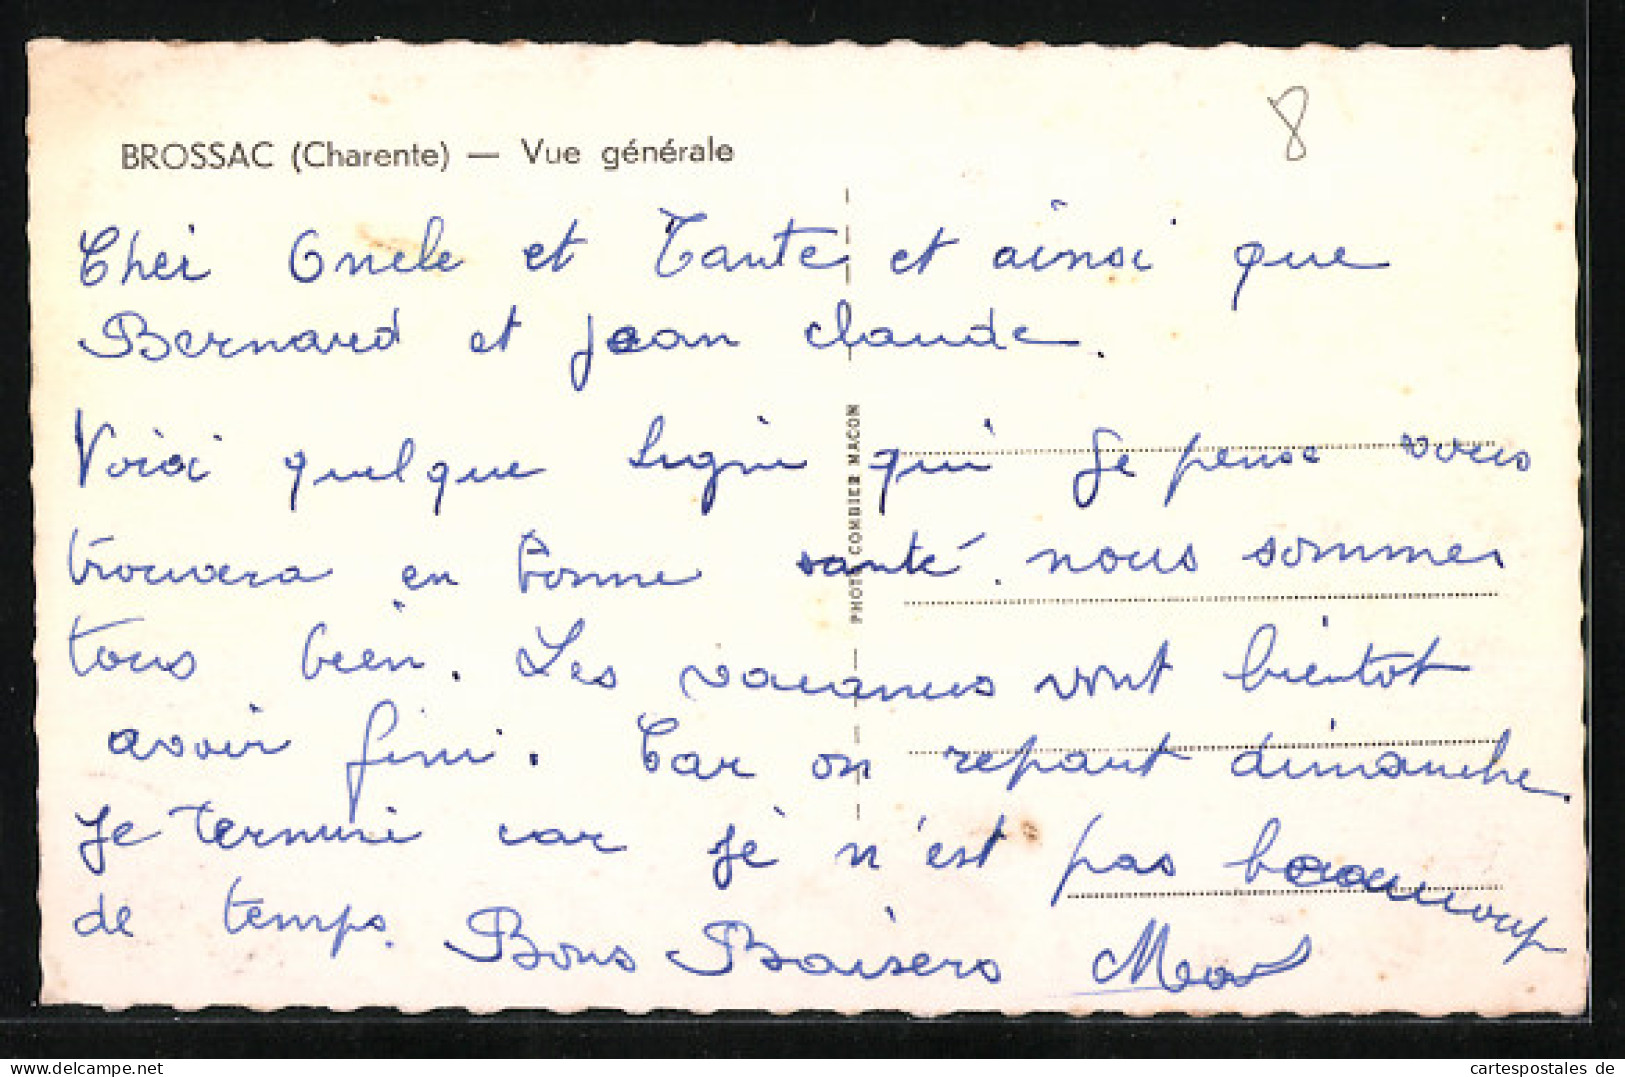 8
BROSSAC (Charente) — Vue générale
Cher Oncle et Tante, et ainsi que
Bernard et Jean claude.
Voici quelque lignie qui je pense vous
trouvera en bonne santé. nous sommes
tous bien. Les vacances vont bientot
avoir fini. Car on repart dimanche.
Je termine car je n'est pas beaucoup
de temps. Bons Baisers
PHOT. COMBIER MACON
www.cartespostales.de
cartespostales de